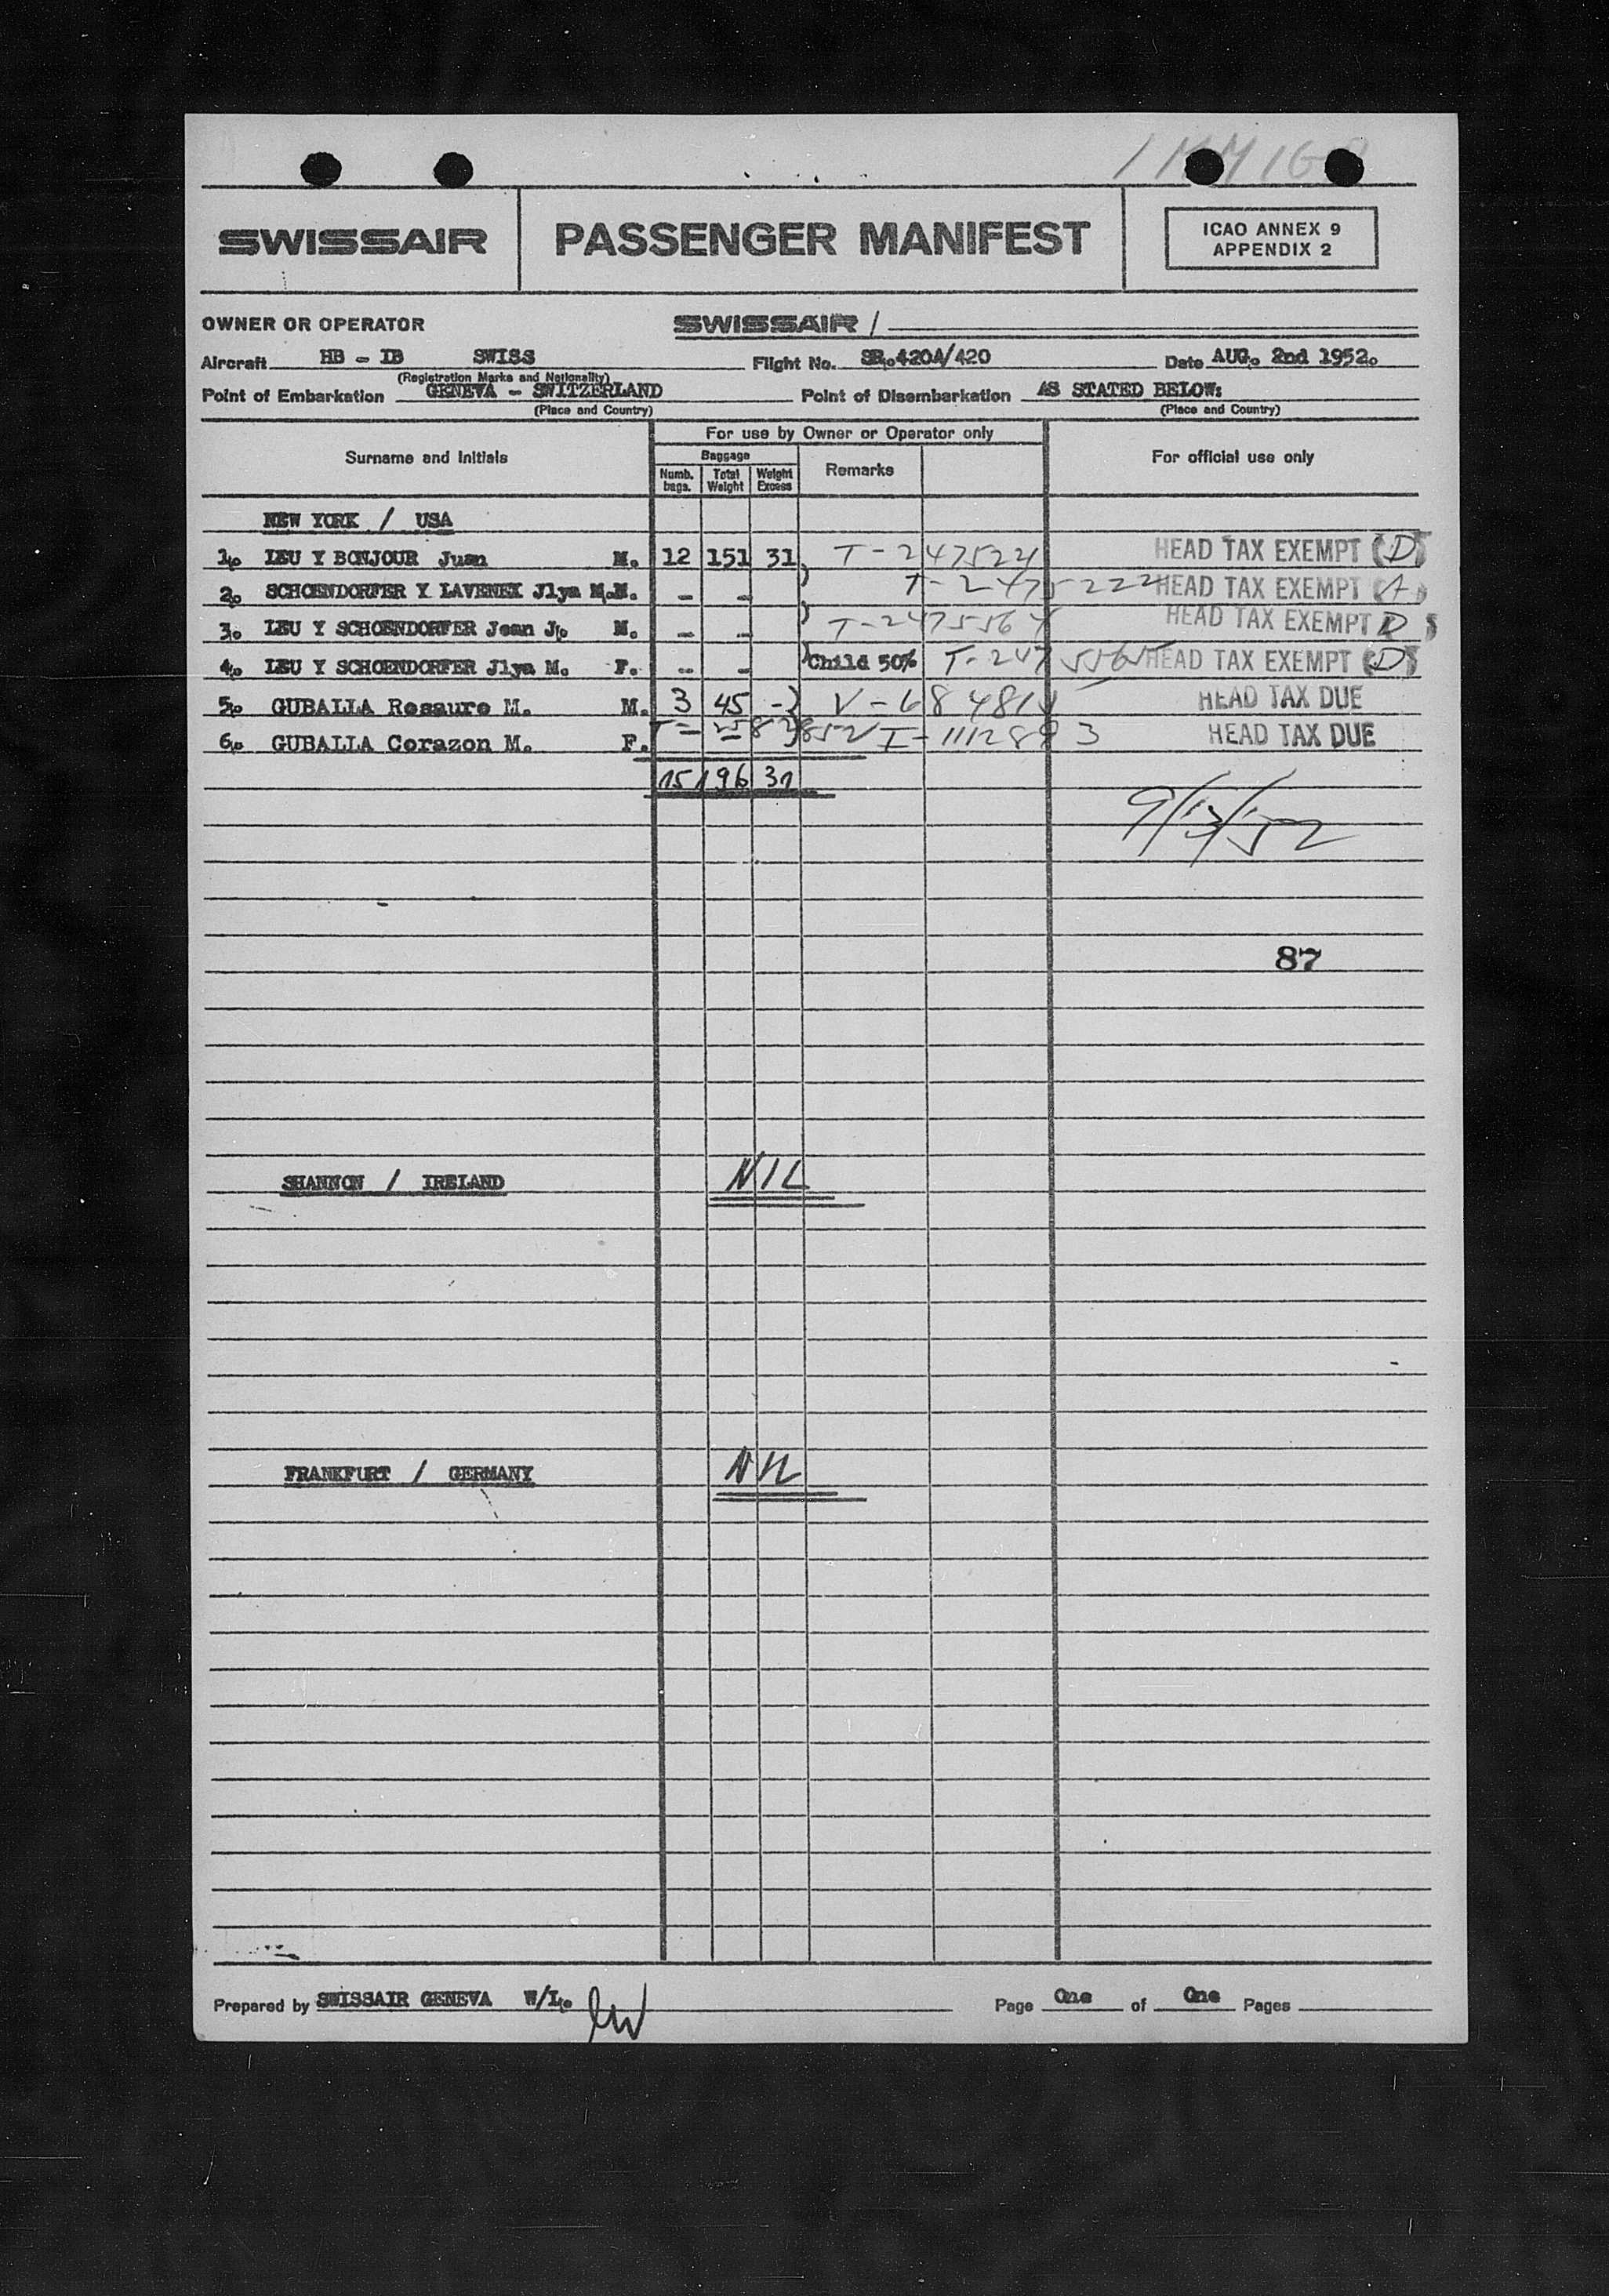 SWISSAIR
PASSENGER MANIFEST
ICAO ANNEX 9
APPENDIX 2
OWNER OR OPERATOR SWISSAIR /
Aircraft HB - IB SWISS Flight No. SR.420A/420 Date AUG. 2nd 1952.
(Registration Marks and Nationality)
Point of Embarkation GENEVA - SWITZERLAND Point of Disembarkation AS STATED BELOW:
(Place and Country) (Place and Country)
For use by Owner or Operator only
Surname and Initials
Baggage
Remarks
For official use only
Numb. bags. Total Weight Weight Excess
NEW YORK / USA
1. LEU Y BONJOUR Juan M. 12 151 31 HEAD TAX EXEMPT D
2. SCHOENDORFER Y LAVENEX Jlya M. - - T-2475222 HEAD TAX EXEMPT A
3. LEU Y SCHOENDORFER Jean J. M. - - T-2475564 HEAD TAX EXEMPT D
4. LEU Y SCHOENDORFER Jlya M. F. - - Child 50% T-2475565 HEAD TAX EXEMPT D
5. GUBALLA Rosauro M. M. 3 45 - HEAD TAX DUE
6. GUBALLA Corazon M. F. HEAD TAX DUE
15 196 31
9/13/52
87
SHANNON / IRELAND NIL
FRANKFURT / GERMANY NIL
Prepared by SWISSAIR GENEVA W/L. Page One of One Pages